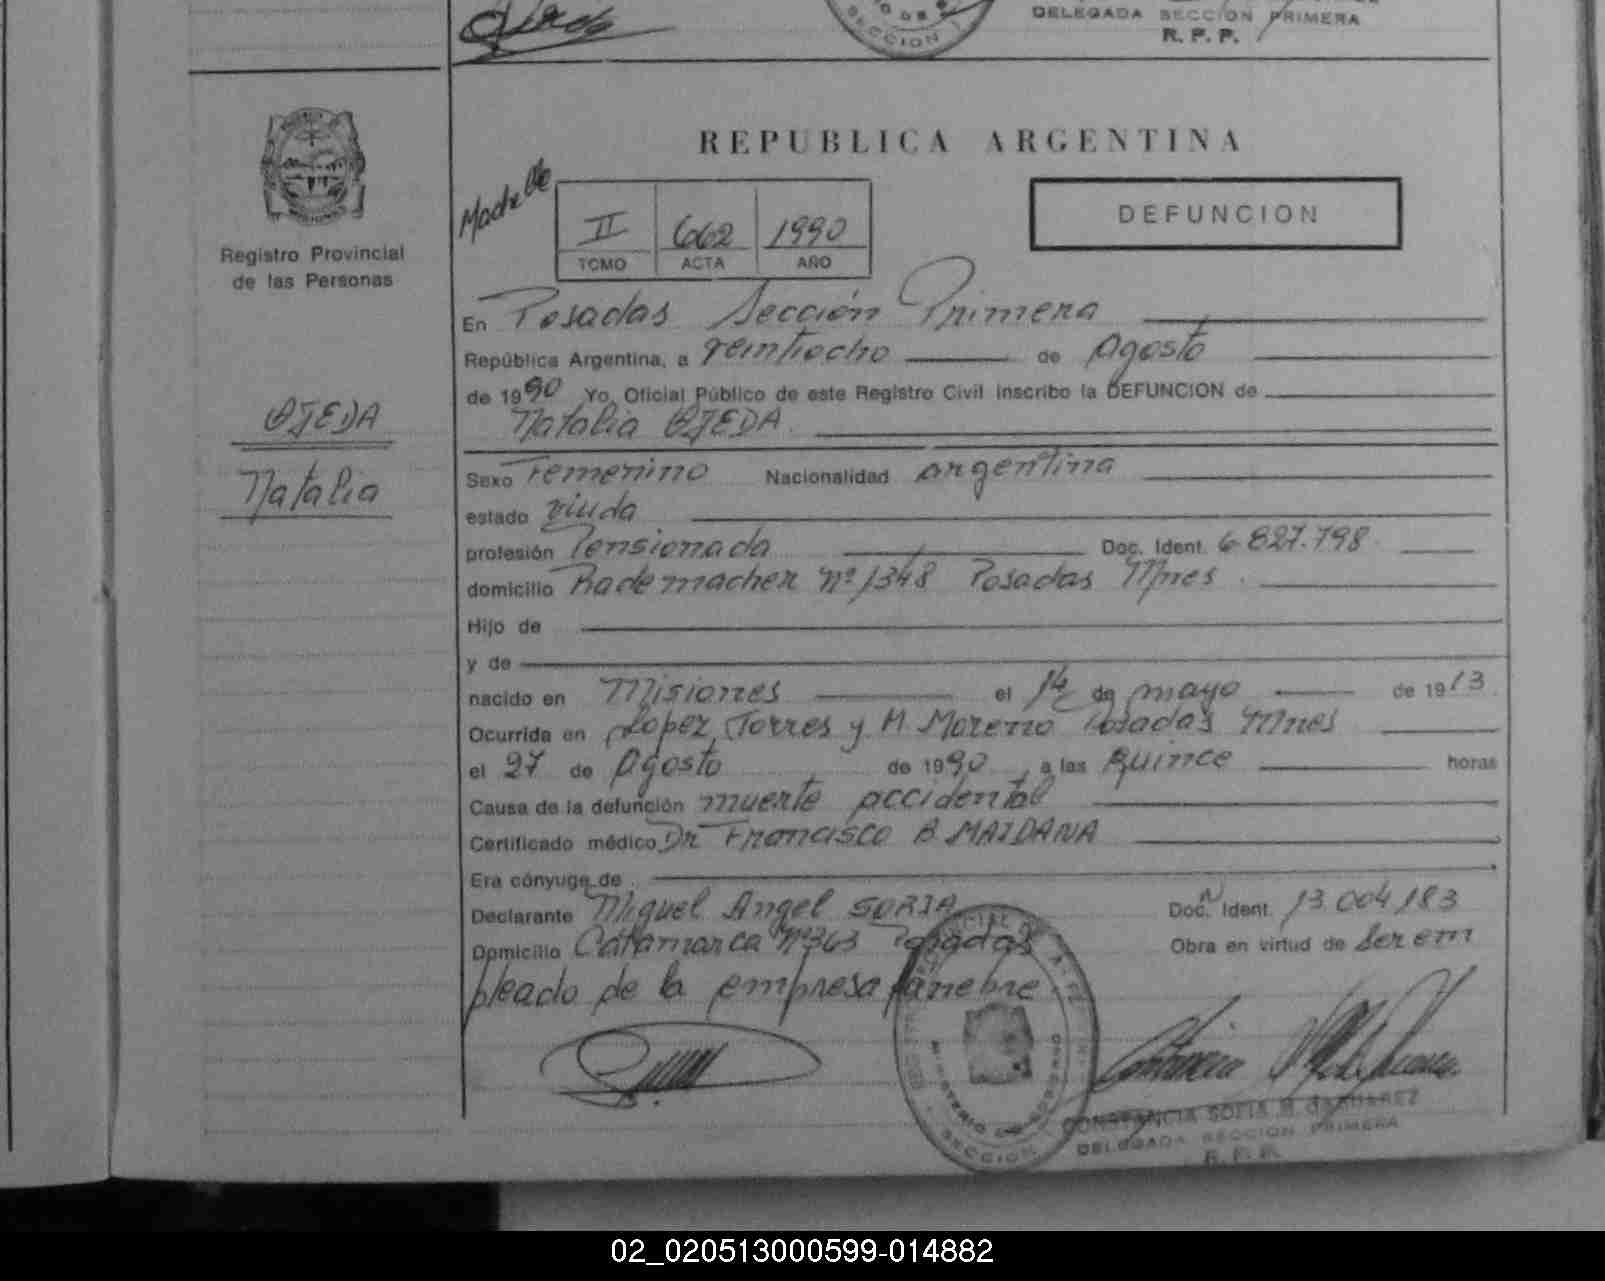 SECCION 1
DELEGADA SECCION PRIMERA
R. P. P.
REPUBLICA ARGENTINA
II 662 1990
TOMO ACTA AÑO
DEFUNCION
Registro Provincial
de las Personas
En Posadas Sección Primera
República Argentina, a veintiocho de Agosto
de 1990 Yo, Oficial Público de este Registro Civil inscribo la DEFUNCION de
Natalia OJEDA
OJEDA
Natalia
Sexo Femenino Nacionalidad argentina
estado viuda
profesión Pensionada Doc. Ident. 6.827.798
domicilio Rademacher Nº 1348 Posadas Mnes.
Hijo de
y de
nacido en Misiones el 14 de mayo de 1913
Ocurrida en Lopez Torres y M. Moreno Posadas Mnes
el 27 de Agosto de 1990, a las quince horas
Causa de la defunción muerte accidental
Certificado médico Dr Francisco B. MAIDANA
Era cónyuge de
Declarante Miguel Angel SORIA Doc. Ident. 13.004.183
Domicilio Catamarca Nº 363 Posadas Obra en virtud de ser em
pleado de la empresa fúnebre
SECCION 1
CONSTANCIA SOFIA M. de SUAREZ
DELEGADA SECCION PRIMERA
R. P. P.
02_020513000599-014882